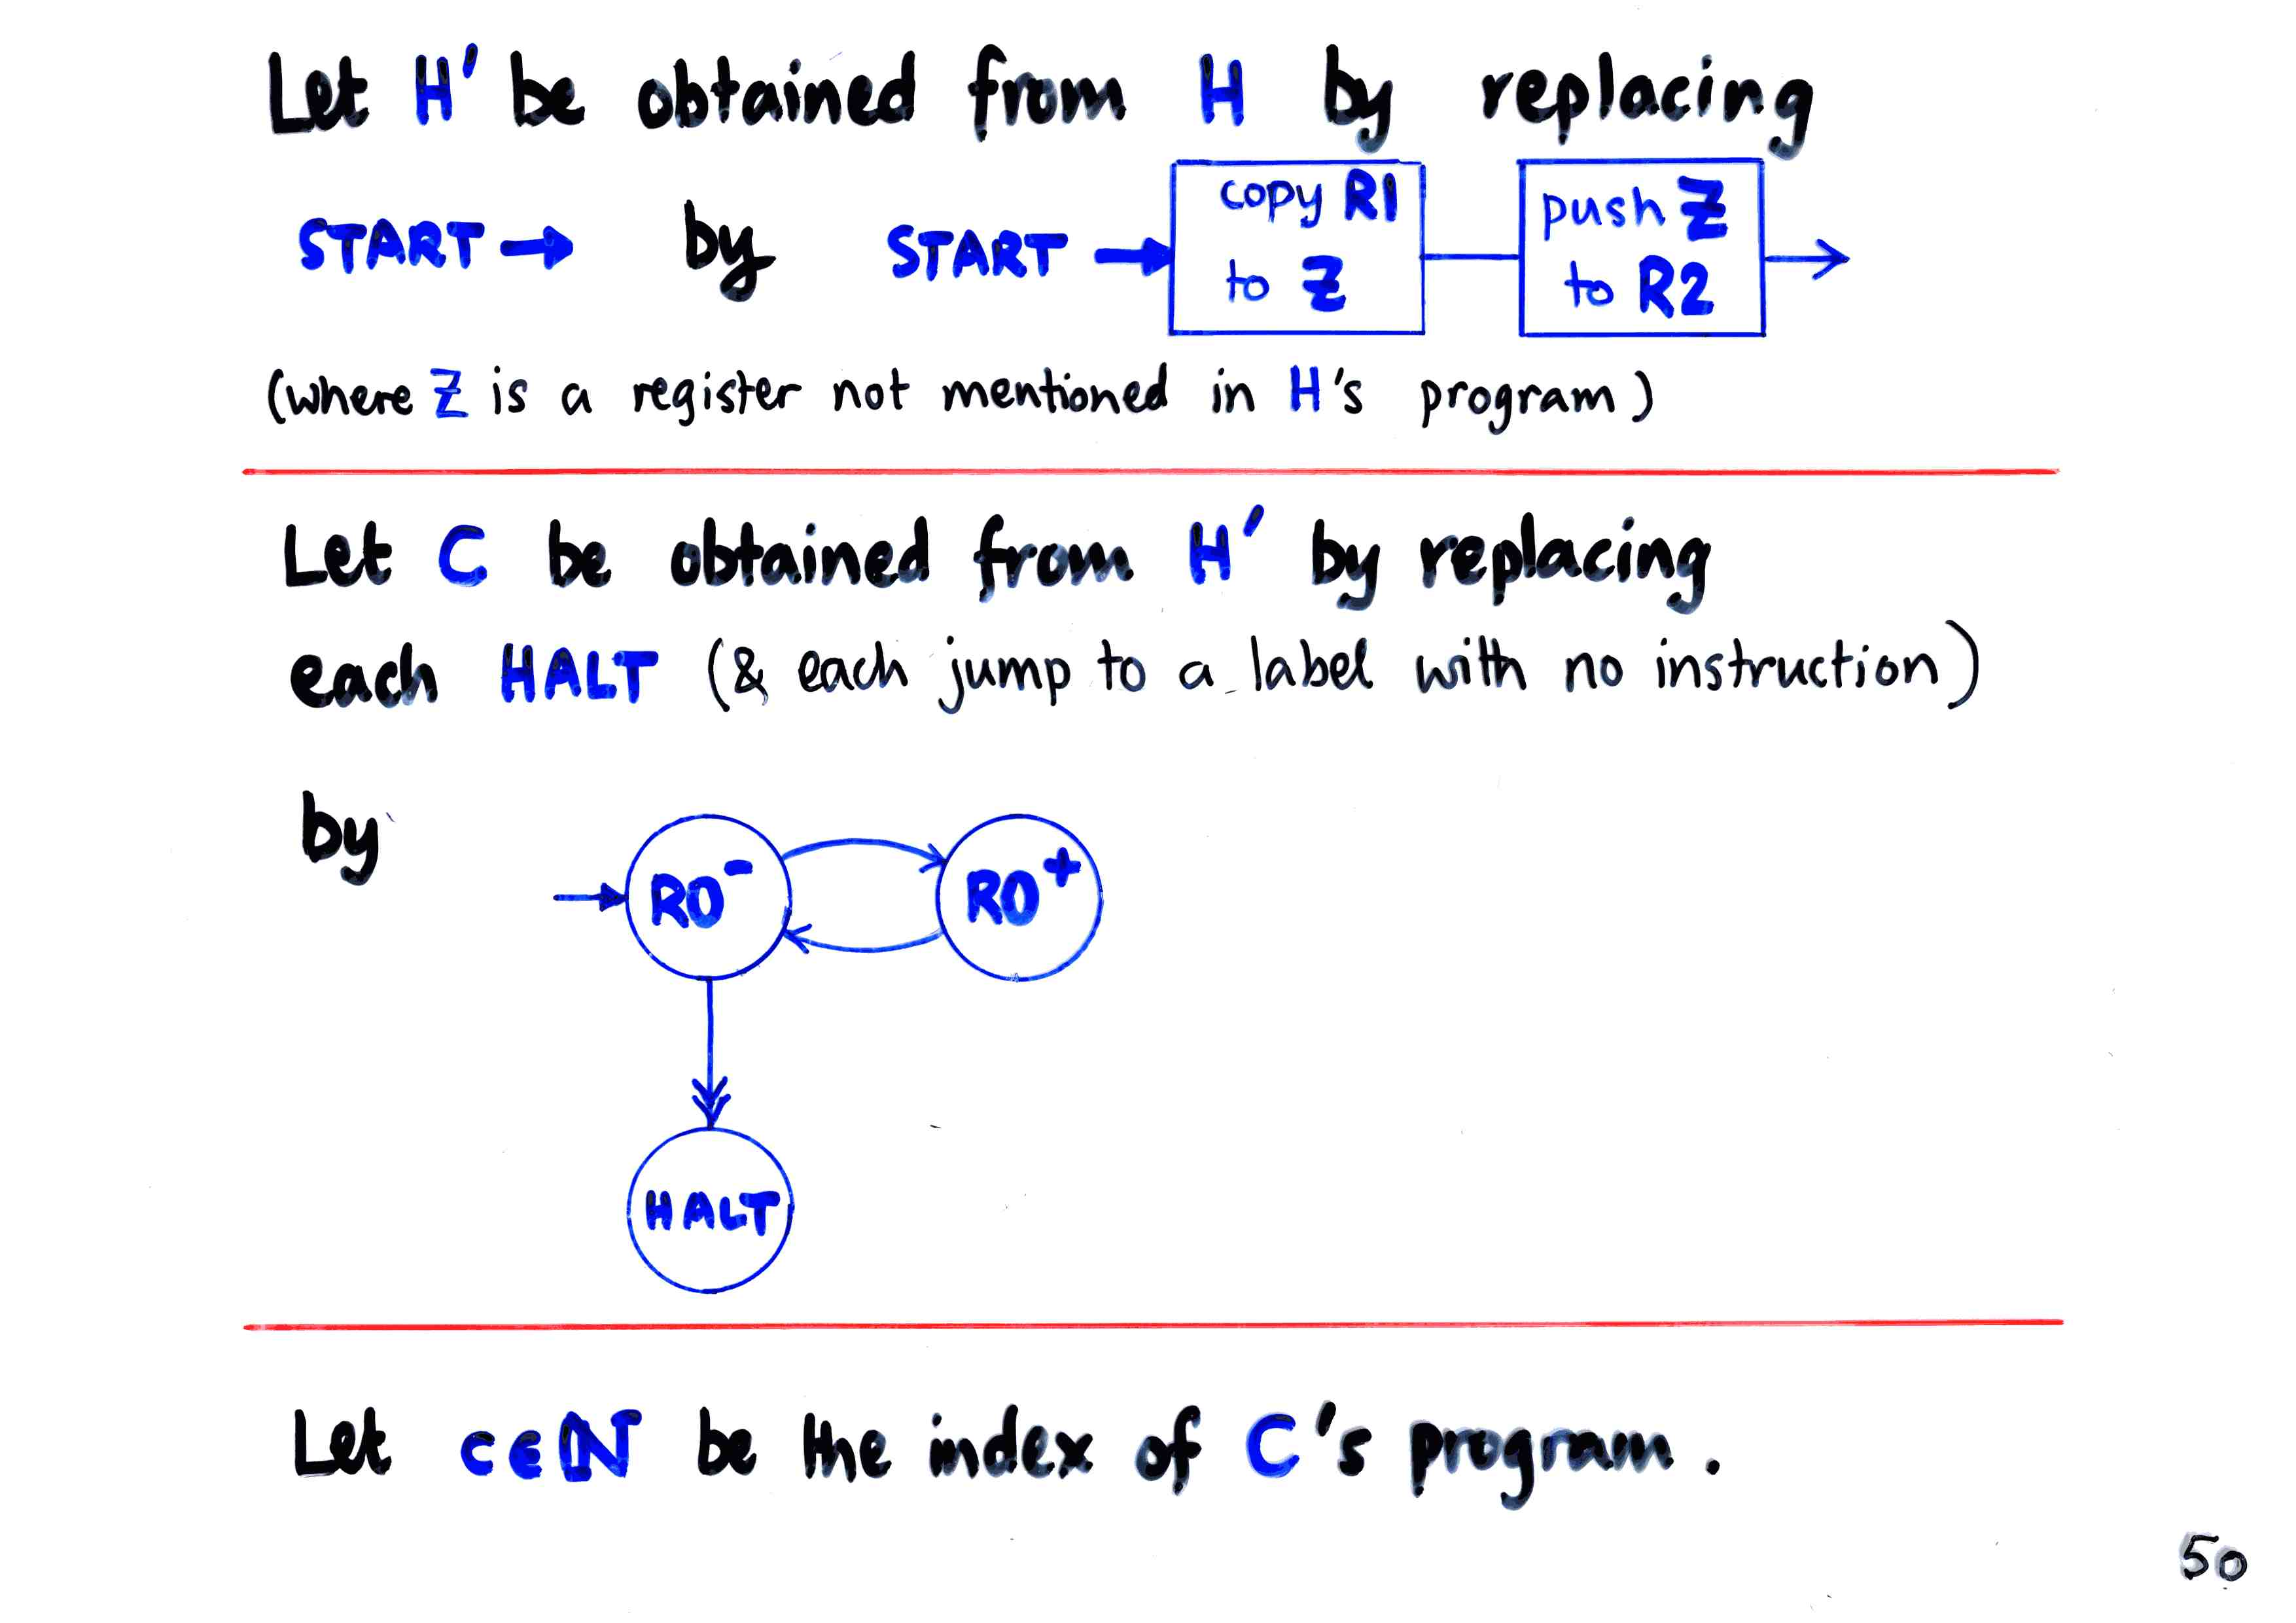 Let H' be obtained from H by replacing
START → by START → copy R1 to Z push Z to R2
(where Z is a register not mentioned in H's program)
Let C be obtained from H' by replacing
each HALT (& each jump to a label with no instruction)
by
R0⁻ R0⁺
HALT
Let c∈ℕ be the index of C's program.
50